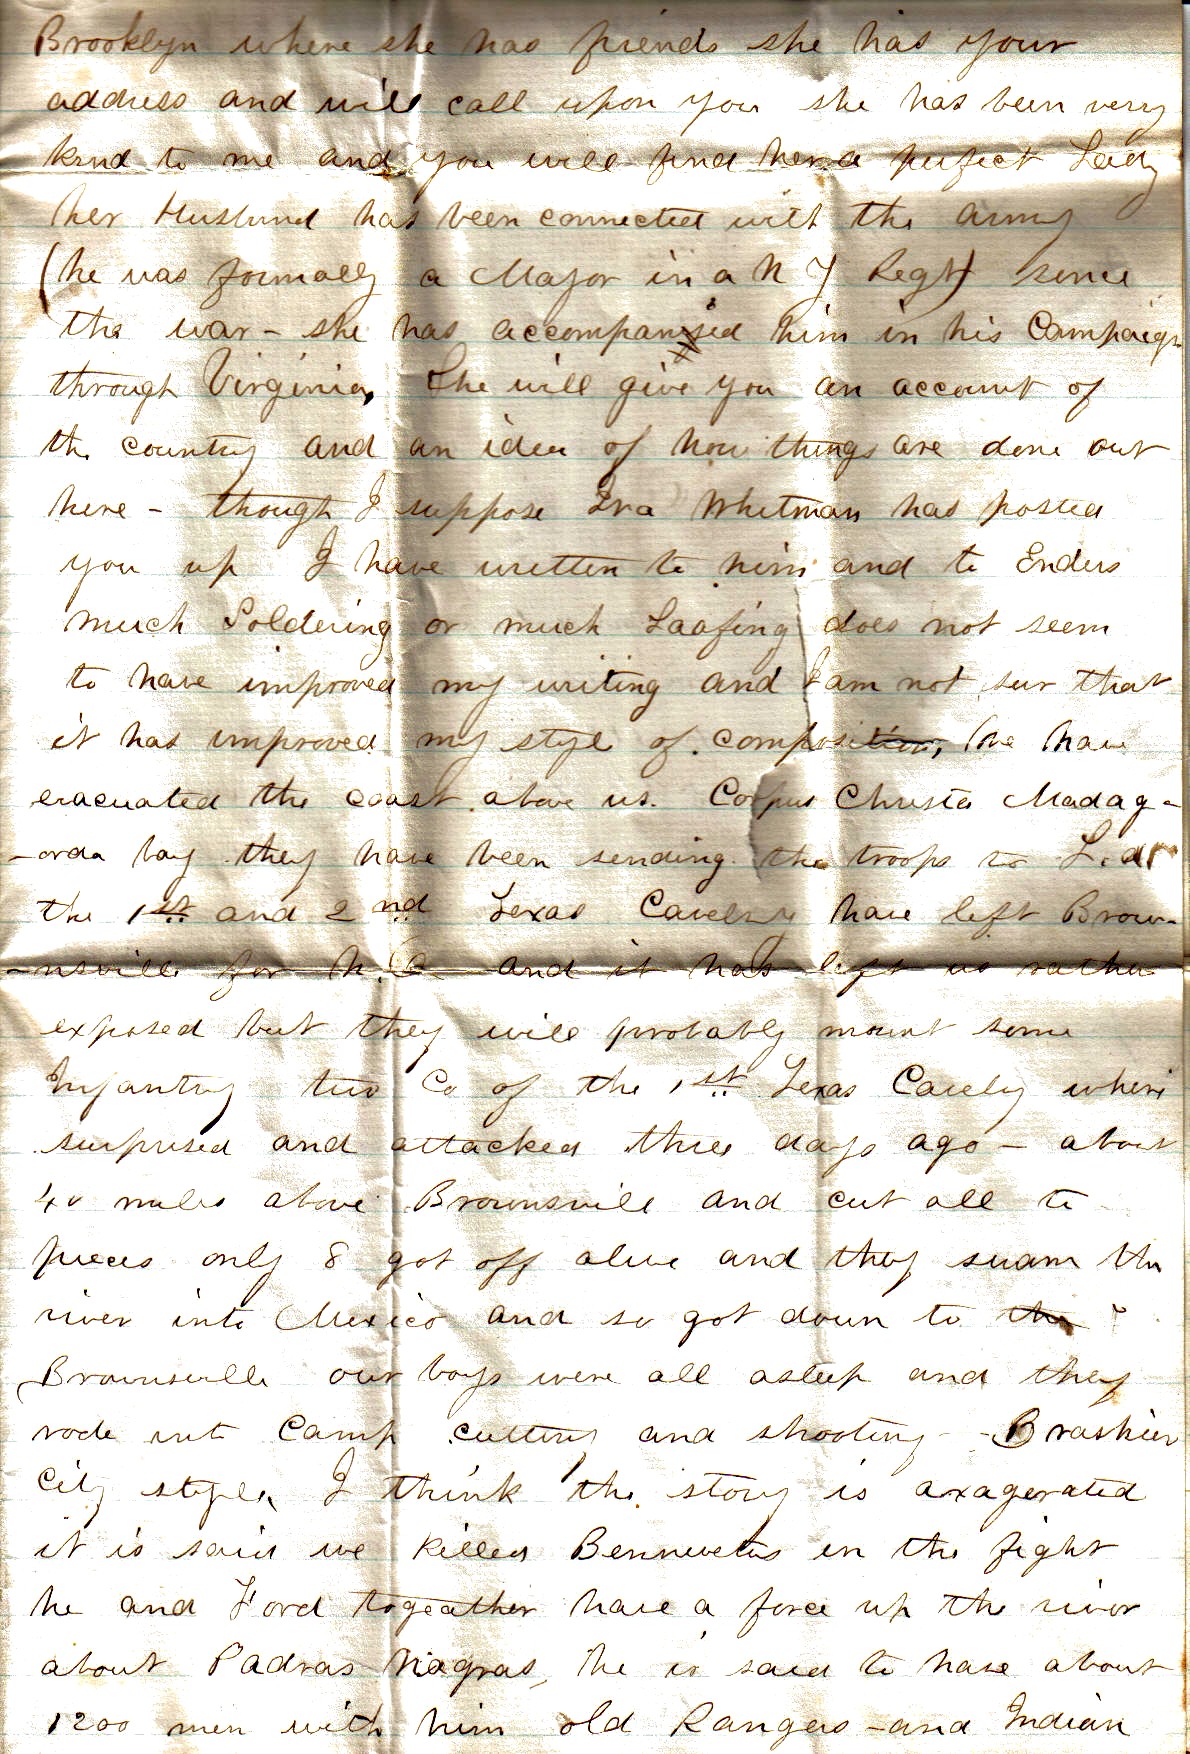 Brooklyn where she has friends she has your
address and will call upon you she has been very
kind to me and you will find her a perfect Lady
her Husband has been connected with the army
(he was formally a Major in a N J Regt) since
the war - she has accompanied him in his Campaign
through Virginia, She will give you an account of
the country and an idea of how things are done out
here - though I suppose Ira Whitman has posted
you up I have written to him and to Enders
much Soldering or much Loafing does not seem
to have improved my writing and I am not sur that
it has improved my style of composition, We have
evacuated the coast above us. Corpus Christa Madag-
-orda bay they have been sending the troops to
the 1st and 2nd Texas Cavelry have left Brow-
-nsville for N.O. and it has left us rather
exposed but they will probably mount some
Infantry two Co of the 1st Texas Cavely where
surprised and attacked three days ago - about
40 miles above Brownsvill and cut all to
pieces only 8 got off alive and they swam the
river into Mexico and so got down to the
Brownsville our boys were all asleep and they
rode into Camp cutting and shooting - Brashier
City style, I think the story is axagerated
it is said we killed Bennevetis in the fight
he and Ford togeather have a force up the river
about Padras Nagras, he is said to have about
1200 men with him old Rangers - and Indian